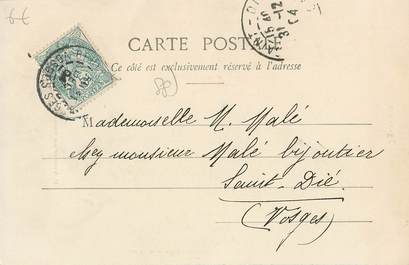 6€
CARTE POSTALE
Ce côté est exclusivement réservé à l'adresse
Mademoiselle M. Malé
chez monsieur Malé bijoutier
Saint-Dié
(Vosges)